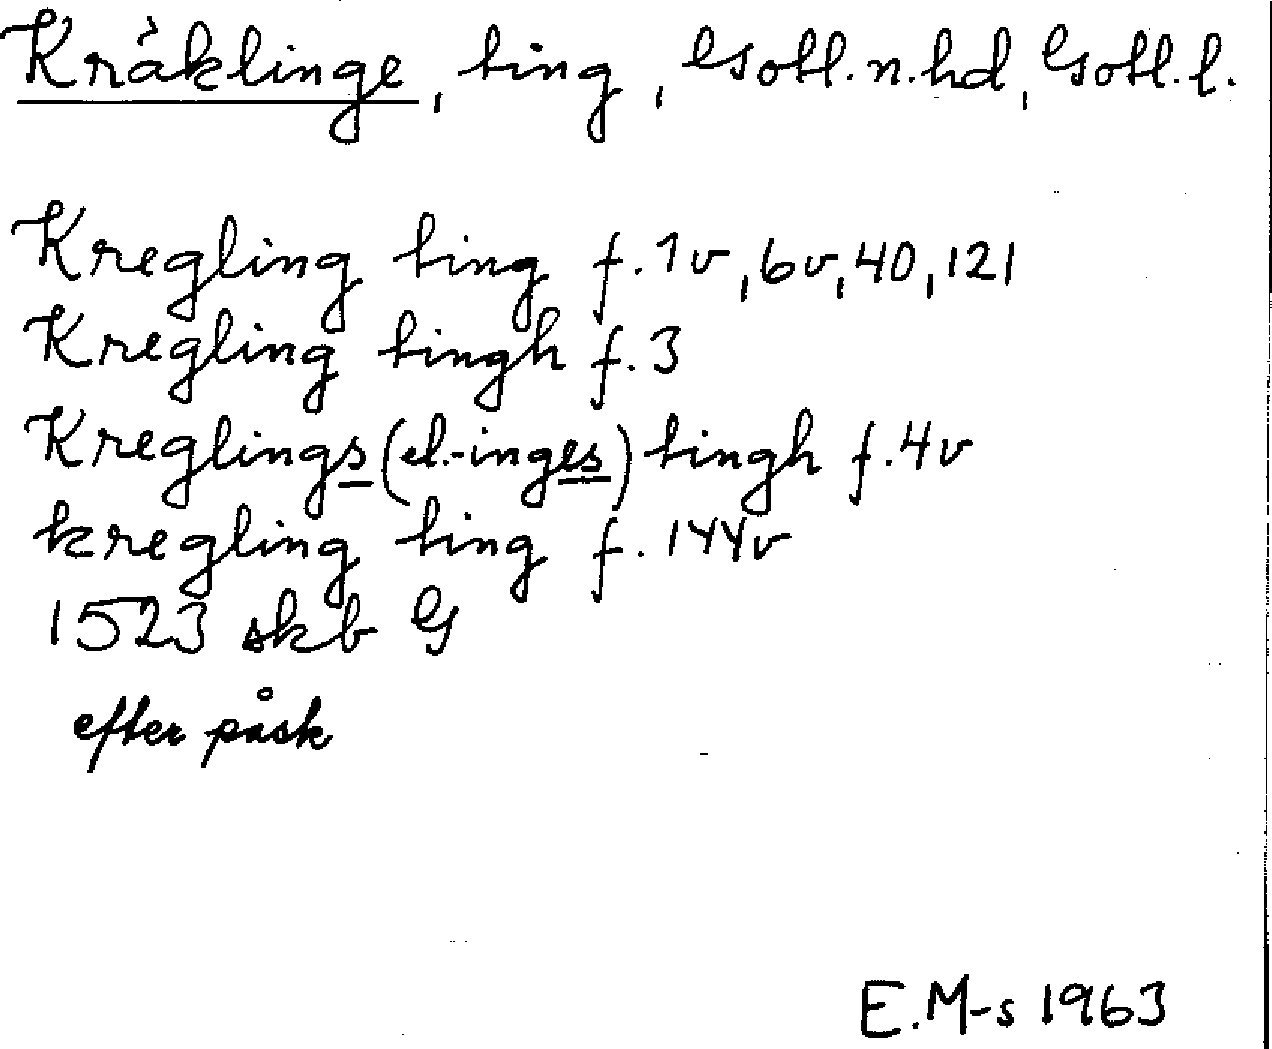 Kräklinge, ting, Gotl. n. hd, Gotl. l.
Kregling ting f. 1v, 6v, 40, 121
Kregling tingh f. 3
Kreglings (el. -inges) tingh f. 4v
kregling ting f. 144v
1523 skb G
efter påsk
E. M-s 1963